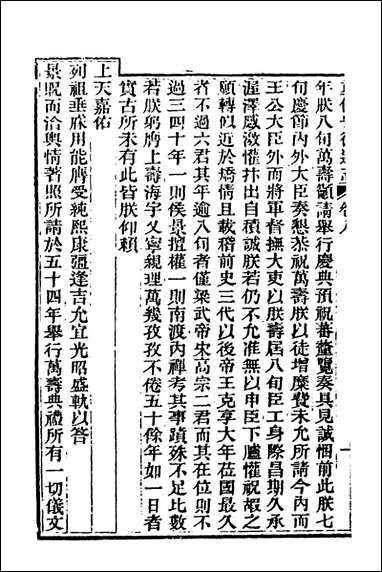 卷八
年朕八旬萬壽籲請舉行慶典預祝蕃釐覽奏具見誠悃前此朕七
旬慶節內外大臣奏懇恭祝萬壽朕以徒增糜費未允所請今內而
王公大臣外而將軍督撫大吏以朕壽屆八旬臣工身際昌期久承
渥澤感激懽忭出自積誠朕若仍不允准無以申臣下臚懽祝嘏之
願轉似近於矯情且載稽前史三代以後帝王克享大年莅國最久
者不過六君其年逾八旬者僅梁武帝宋高宗二君而其在位則不
過三四十年一則侯景擅權一則南渡內禪考其事蹟殊不足比數
若朕躬膺上壽海宇乂寧親理萬幾孜孜不倦五十餘年如一日者
實古所未有此皆朕仰賴
上天嘉佑
列祖垂庥用能膺受純熙康彊逢吉允宜光昭盛軌以答
景貺而洽輿情著照所請於五十四年舉行萬壽典禮所有一切儀文